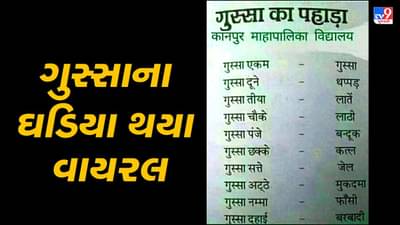 ગુસ્સાના
ઘડિયા થયા
વાયરલ
गुस्सा का पहाड़ा
कानपुर माहापालिका विद्यालय
गुस्सा एकम – गुस्सा
गुस्सा दूने – थप्पड़
गुस्सा तीया – लातें
गुस्सा चौके – लाठी
गुस्सा पंजे – बन्दूक
गुस्सा छक्के – कत्ल
गुस्सा सत्ते – जेल
गुस्सा अट्ठे – मुकदमा
गुस्सा नम्मा – फाँसी
गुस्सा दहाई – बरबादी
TV9